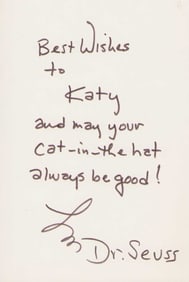 Best Wishes
to
Katy
and may your
cat-in-the hat
always be good!
Dr. Seuss